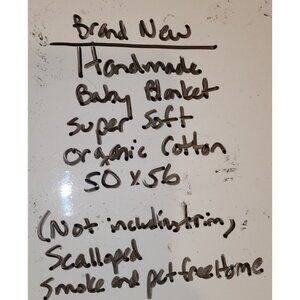 Brand New
Handmade
Baby Blanket
super soft
organic Cotton
50 x 56
(Not including trim)
Scalloped
Smoke and pet free Home